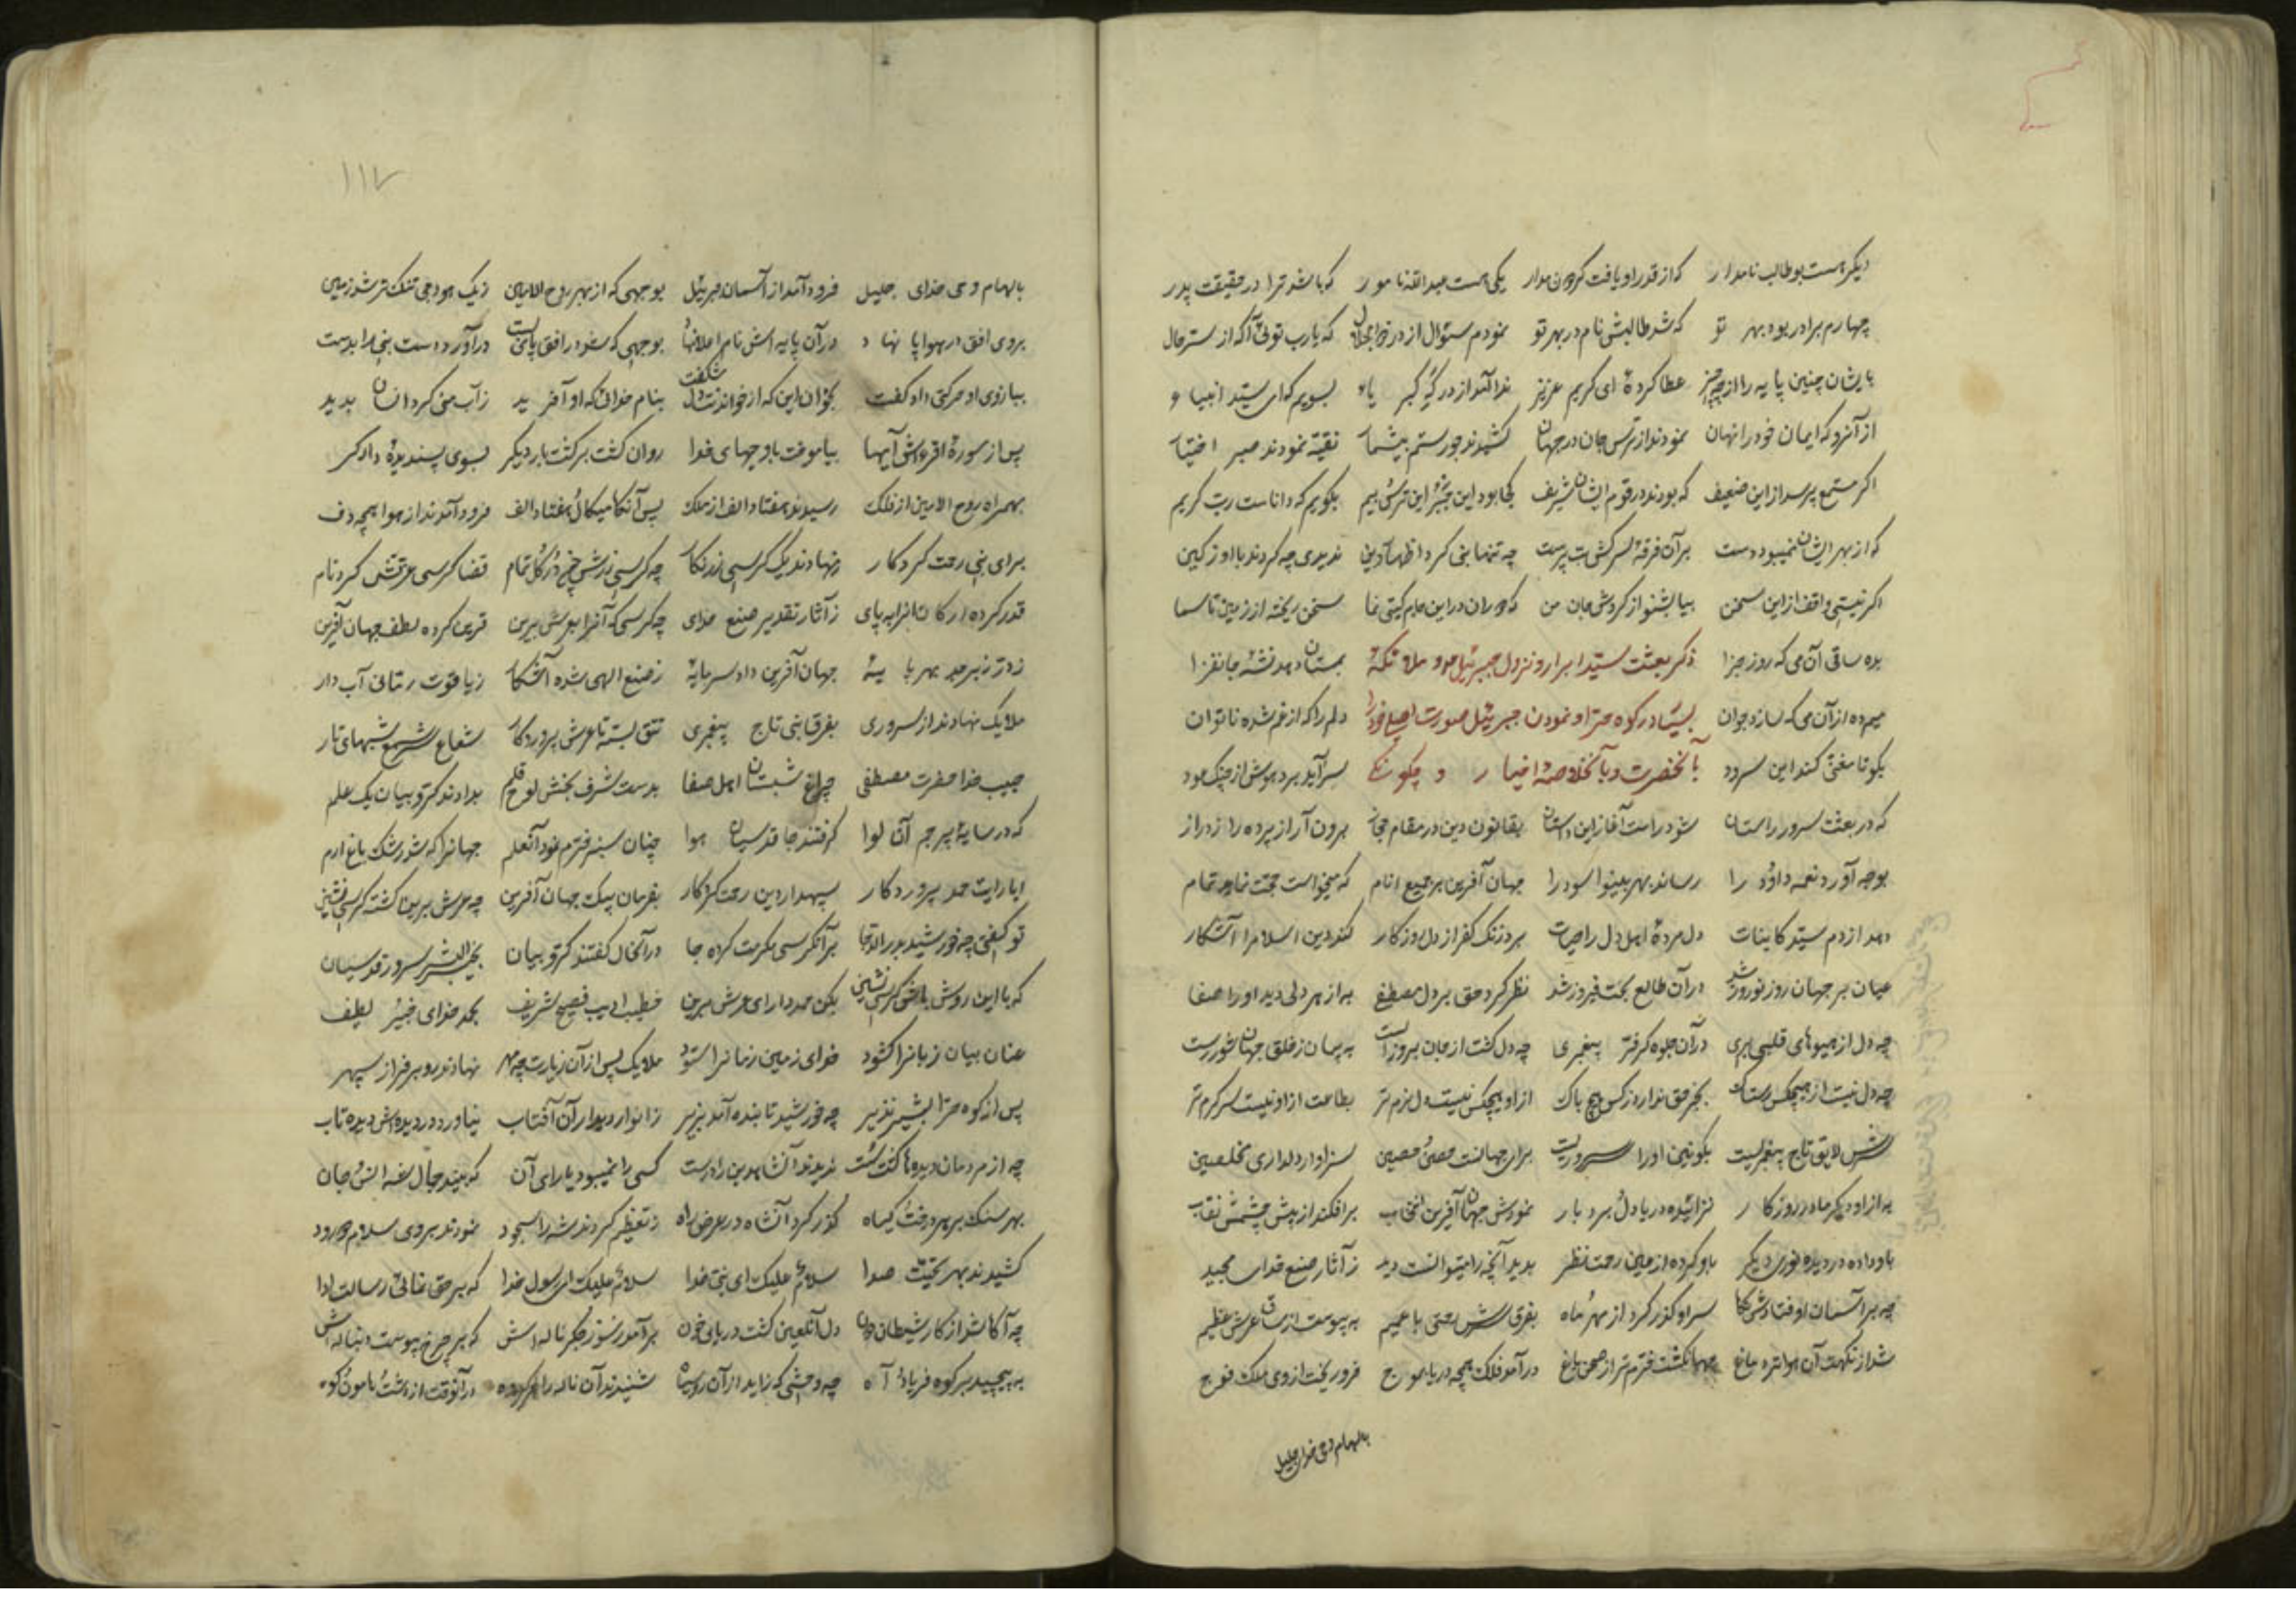 دیگر هست بوطالب نامدار که از قدر او یافت گردون مدار یکی هست عبدالله نامور که باشد ترا در حقیقت پدر
چهارم برادر بود بهر تو که شد طالبش نام در بهر تو نمودم سئوال از در ذوالجلال که یارب توئی آگه از ستر حال
بایشان چنین پایه را از چه چیز عطا کردهٔ ای کریم عزیز ندا آمد از درگه کبریا بسویم که ای سید انبیا
از آنرو که ایمان خود را نهان نمودند از ترس جان در جهان کشیدند جور و ستم بیشمار تقیّه نمودند صبر اختیار
اگر مستمع پرسد از این ضعیف که بودند در قوم ایشان شریف کجا بود این این ترس بیم بگویم که داناست رب کریم
که از بهر ایشان نمیبود دست بر آن فرقهٔ سرکش بت پرست چه تنها نبی کرد اظهار دین ندیدی چه کردند با او ز کین
اگر نیستی واقف از این سخن بیا بشنو از گردش جام من که دوران در این جام گیتی نما سخن ریخته از زمین تا سما
بده ساقی آن می که روز جزا ذکر بعثت سید ابرار و نزول جبرئیل و ملائکهٔ بمستان دهد نشئهٔ جانفزا
میم ده از آن می که سازد جوان بسیار در کوه حرا و نمودن جبرئیل صورت اصلی خود را دلم را که از غم شده ناتوان
بگو تا مغنی کند این سرود بآنحضرت و با آنخلاصهٔ اخیار و چگونگی سرآید برد هوش از چنگ عود
که در بعثت سرور راستان شود راست آغاز این داستان بقانون دین در مقام حجاز برون آر از پرده راز دراز
بوجد آورد نغمه داوُد را رساند بهر بینوا سود را جهان آفرین بر جمیع انام که میخواست حجت نماید تمام
دمد از دم سید کاینات دل مردهٔ اهل دل را حیات برد زنگ کفر از دل روزگار کند دین اسلام را آشکار
عیان بر جهان روز نوروز شد در آن طالع بخت فیروز شد نظر کرد حق بر دل مصطفی به از هر دلی دید او را صفا
چه دل از هیوهای قلبی بری در آن جلوه گر فرّ پیغمبری چه دل گشت از جان بروز الست به پیمان ز خلق جهان
چه دل نیست از هیچکس بجز حق ندارد ز کس هیچ باک از او هیچکس نیست دل نرم تر بطاعت از او نیست سرگرم تر
سرش لایق تاج پیغمبریست بکونین او را سروریست برای جهانست سزاوار دلداری مخلصین
به از او دیگر مادر روزگار نزائیده دریا دل بردبار نمودش جهان آفرین انتخاب برافکند از پیش چشمش نقاب
باو داده در دیده نوری دیگر باو کرده از عین رحمت نظر بدید آنچه را میتوانست دید ز آثار صنع خدای مجید
چه بر آسمان اوفتادش نگاه سر او گذر کرد از مهر و ماه بفرق سرش رحمتی با عمیم به پیوست از ساق عرش عظیم
شد از نکهت آن هوا تره باغ جهان گشت خرم تر از صحن باغ درآمد فلک همچه دریا بموج فرو ریخت از وی ملک فوج
بالهام وحی خدای جلیل
۱۱۷
بالهام وحی خدای جلیل فرود آمد از آسمان جبرئیل بوجهی که از بهر روح الامین ز یک هودجی تنگ تر شد زمین
بروی افق در هوا پا نهاد در آن پایه اش نام اعلا نهاد بوجهی که بنمود را فق پای بست درآورد دست نبی را بدست
ببازوی او حرکتی داد گفت بخوان این که از خواندنت دل شگفت بنام خدائی که او آفرید ز آب منی کرد انسان پدید
پس از سورهٔ اقرء اش آیها بیاموخت با وجههای خدا روان گشت برگشت بار دیگر بسوی پسندیدهٔ دادگر
بهمراه روح الامین از فلک رسیدند هفتاد الف از ملک پس آنگاه میکال و هفتاد الف فرود آمدند از هوا همچه دف
برای نبی رحمت کردگار نهادند یک کرسی زرنگار چه کرسی تمام قضا کرسی عزتش کرد نام
قدر کرده ارکان آنرا بپای ز آثار تقدیر صنع خدای چه کرسی که آنرا بعرش برین قرین کرده لطف جهان آفرین
ز در ز زبرجد بهر پایهٔ جهان آفرین داد سرمایهٔ ز صنع الهی شده آشکار ز یاقوت رمّانی آب دار
ملایک نهادند از سروری بفرق نبی تاج پیغمبری تتق بسته تا عرش پروردگار شعاع شبهای تار
حبیب خدا حضرت مصطفی چراغ شبستان اهل صفا بدست شرف بخش لوح و قلم بدادند کرّوبیان یک علم
که در سایهٔ پرچم آن لوا گرفتند جا قدسیان هوا چنان سبز و خرم نمود آنعلم جهانرا که شد رشک باغ ارم
ابا رایت حمد پروردگار سپهدار دین رحمت کردگار بفرمان پیک جهان آفرین چه عرش برین گشته کرسی نشین
تو گفتی چه خورشید بدر الدجا بر آنکرسی مکرمت کرده جا در آنحال گفتند کرّوبیان بخیر البشر سرور قدسیان
که با این روش باش کرسی نشین بکن حمد دارای عرش برین خطیب ادیب فصیح شریف بحمد خدای خبیر لطیف
عنان بیان زبانرا گشود خدای زمین و زمانرا ستود ملایک پس از آن زیارت چه مهر نهادند رو بر فراز سپهر
پس از کوه حرا بشیر نذیر چه خورشید تابنده آمد بزیر ز انوار دیدار آن آفتاب نیاورد در دیده اش دیده تاب
چه از مردمان دیده ها گشت ندیدند آنشاه دین را درست کسی را نمیبود یارای آن که بیند جمال شه انس و جان
بهر سنگ و بر هر درخت و گیاه گذر کرد آنشاه در عرض راه ز تعظیم کردند شه را سجود نمودند بر وی سلام و درود
کشیدند بهر تحیّت صدا سلامٌ علیک ای نبی خدا سلامٌ علیک ای رسول خدا که بر حق نمائی رسالت ادا
چه آگاه شد از کار شیطان دون دل آنلعین گشت دریای خون برآمد ز سوز جگر ناله اش که بر چرخ پیوست دنباله اش
به پیچید بر کوه فریاد و آه چه وحشی که زاید از آن روسیاه شنیدند آن ناله را هر گروه در آنوقت از دشت و هامون و کوه